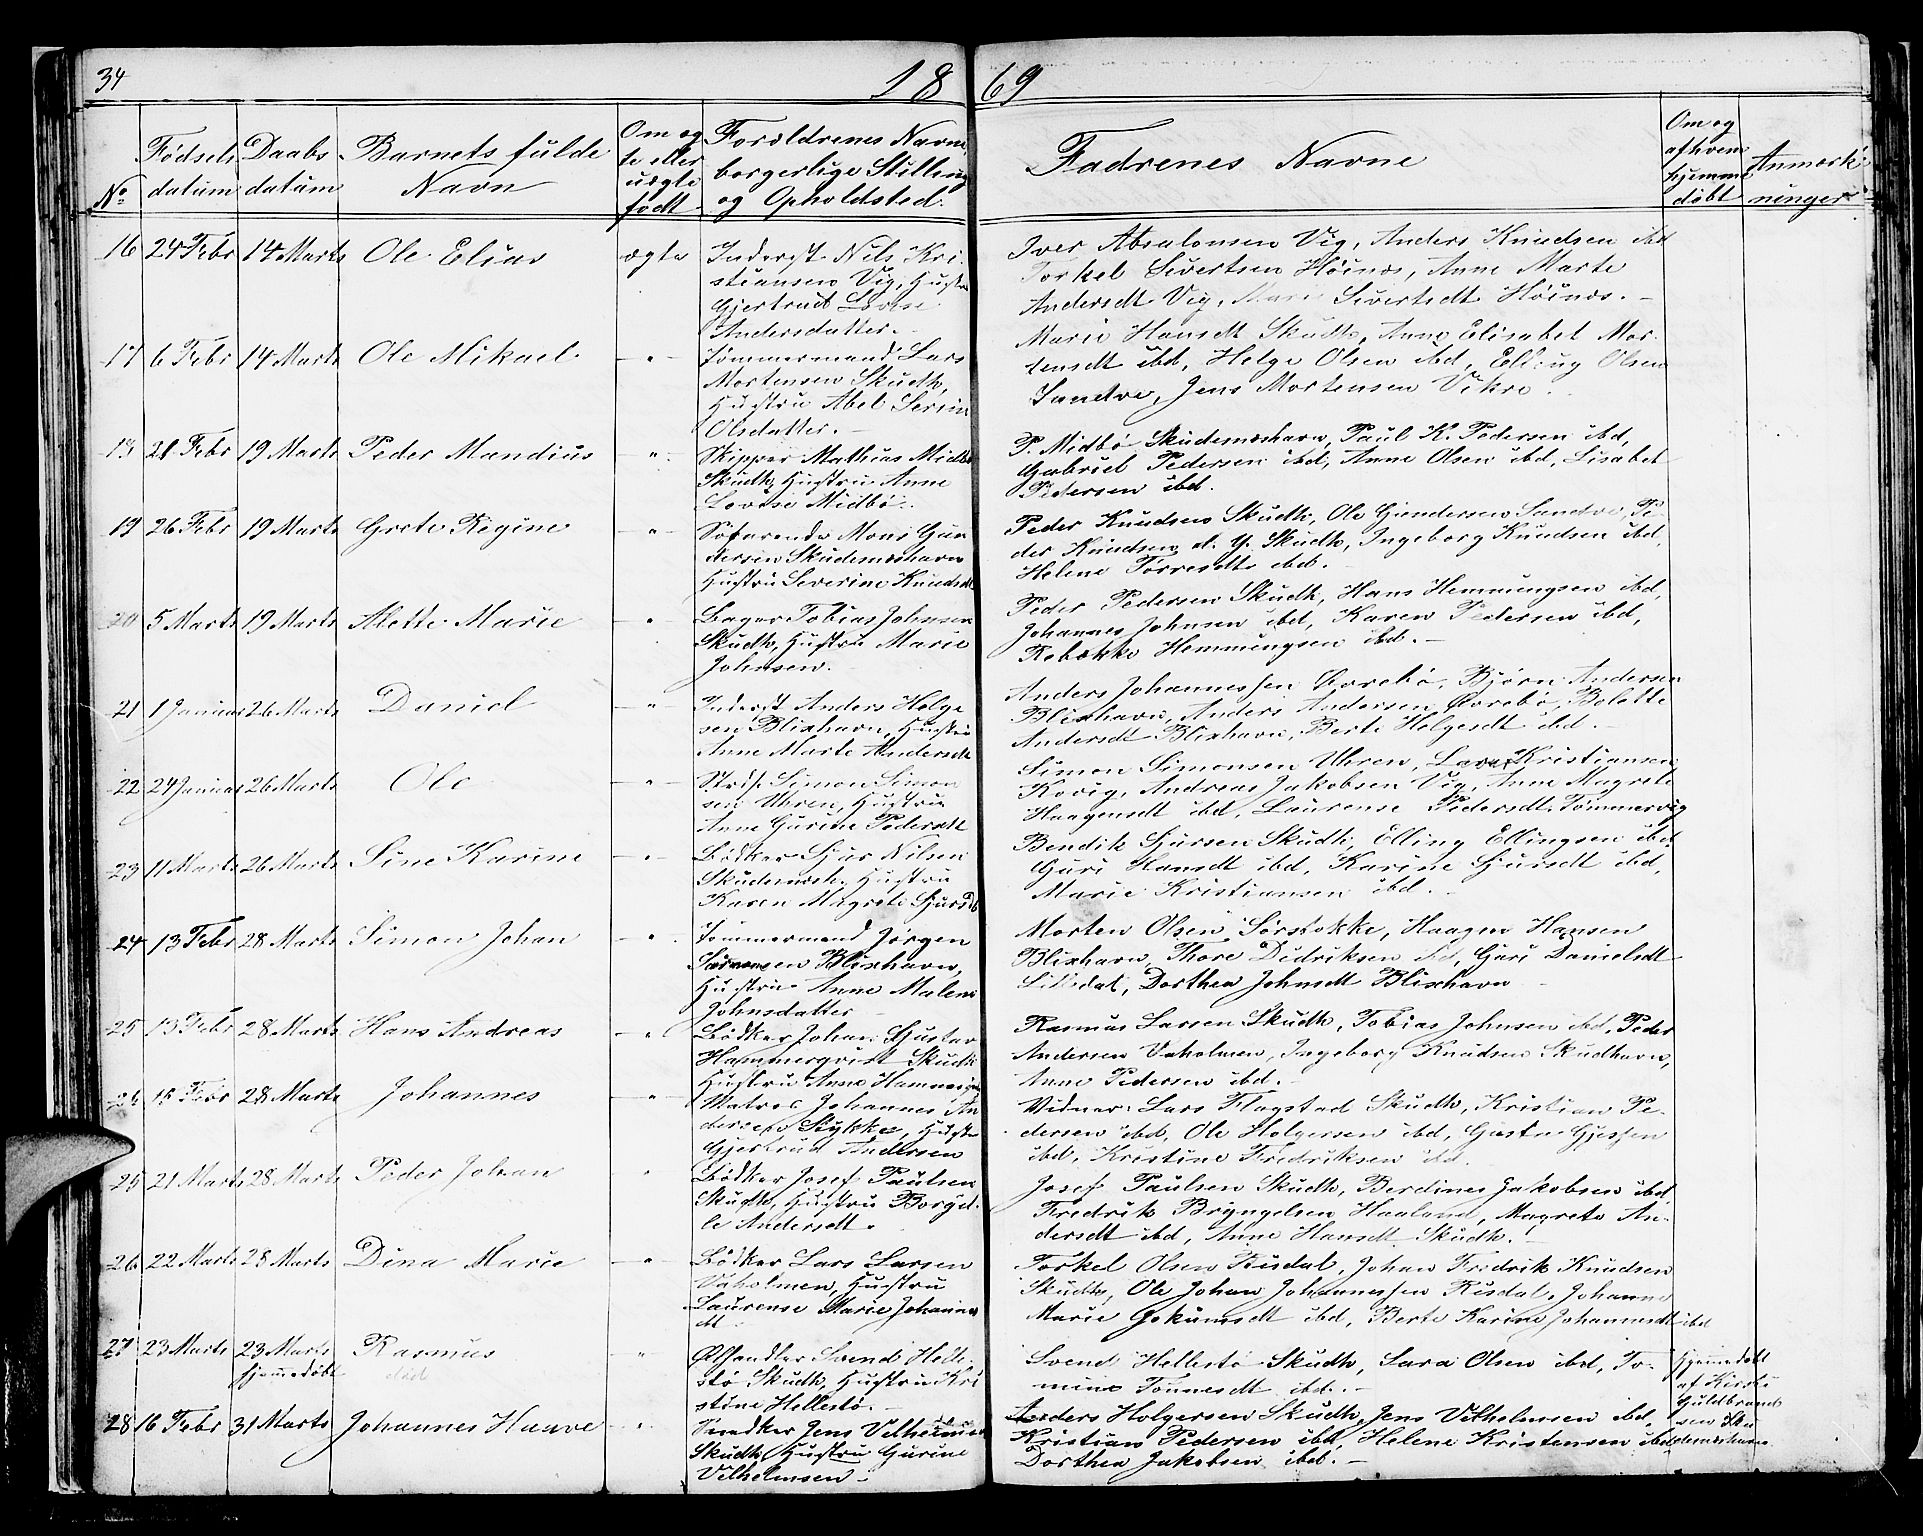 34
18 69
No
Fødsels datum
Daabs datum
Barnets fulde Navn
Om ægte eller uægte født
Forældrenes Navne, borgerlige Stilling og Opholdsted.
Fadrenes Navne
Om og af hvem hjemme døbt
Anmærkninger
16 24 Febr 14 Marts Ole Elias ægte
Inderst Nils Kri-
stiansen Vig, Hustr
Gjertrud Lovise
Andersdatter.
Iver Absalonsen Vig, Anders Knudsen ibd
Torkel Sivertsen Høinæs, Anne Marte
Andersdt Vig, Sivertsdt Høinæs.
17 6 Febr 14 Marts Ole Mikael. "
Tømmermand Lars
Mortensen Skudh,
Hustru Abel Serine
Olsdatter.
Marie Hansdt Skudh, Anne Elisabet Mor-
tensdt ibd, Helge Olsen ibd, Olsen
Sandve, Jens Mortensen Vikre.
18 21 Febr 19 Marts Peder Mandius "
Skipper Mathias Midbø
Skudh, Hustru Anne
Lovise Midbø.
P. Midbø Skudesneshavn, Paul K. Pedersen ibd,
Gabriel Pedersen ibd, Anne Olsen ibd, Lisabet
Pedersen ibd.
19 26 Febr 19 Marts Grete Regine "
Søfarende Mons Gun
dersen Skudesneshavn
Hustru Severine Knudsdt
Peder Knudsen Skudh, Ole Gundersen Sandve, Pe-
der Knudsen d. y. Skudh, Ingeborg Knudsen ibd,
Helene Tørresdt ibd.
20 5 Marts 19 Marts Alette Marie "
Bager Tobias Johnsen
Skudh, Hustru Marie
Johnsen.
Peder Pedersen Skudh, Hans Hemmingsen ibd,
Johannes Johnsen ibd, Karen Pedersen ibd,
Rebekke Hemmingsen ibd.
21 1 Januar 26 Marts Daniel "
Inderst Anders Helge
sen Blixhavn, Hustru
Anne Marte Andersdt
Anders Johannessen Øvrebø, Bjørn Andersen
Blixhavn, Anders Andersen Øvrebø, Bolette
Andersdt Blixhavn, Berte Helgesdt ibd.
22 24 Januar 26 Marts Ole "
Strds. Simon Simon
sen Uhren, Hustru
Anne Gurine Pedersdt
Simon Simonsen Uhren, Kristiansen
Kovig, Andreas Jakobsen Vig, Anne Magrete
Haagensdt ibd, Laurense Pedersdt Tømmervig
23 11 Marts 26 Marts Sine Karine "
Bødker Sjur Nilsen
Skudesnesh, Hustru
Karen Magrete Sjursdt
Bendik Sjursen Skudh, Elling Ellingsen ibd
Guri Hansdt ibd, Karine Sjursdt ibd,
Marie Kristiansen ibd.
24 13 Febr 28 Marts Simon Johan "
Tømmermand Jørgen
Simonsen Blixhavn,
Hustru Anne Malene
Johnsdatter
Morten Olsen Sørstokke, Haagen Hansen
Blixhavn, Thore Didriksen ibd, Guri Danielsdt
Dorthea Johnsdt Blixhavn
25 13 Febr 28 Marts Hans Andreas "
Bødker Johan Gustav
Hammerqvist Skudh
Hustru Anne Hammerqv
Rasmus Larsen Skudh, Tobias Johnsen ibd, Peder
Andersen Vaholmen, Ingeborg Knudsen Skudhavn,
Anne Pedersen ibd.
26 15 Febr 28 Marts Johannes "
Matros Johannes An
dersen Stykke, Hustr
Gjertrud Andersen
Vidner: Lars Flagstad Skudh, Kristian Pe-
dersen ibd, Ole Holgersen ibd, Gjessen
ibd, Kristine Fredriksen ibd.
25 21 Marts 28 Marts Peder Johan "
Bødker Josef Paulsen
Skudh, Hustru Borgil
le Andersdt.
Josef Paulsen Skudh, Berdines Jakobsen ibd
Fredrik Bryngelsen Haaland, Magrete An-
dersdt ibd, Anne Hansdt Skudh.
26 22 Marts 28 Marts Dina Marie "
Bødker Lars Larsen
Vaholmen, Hustru
Laurense Marie Johannes
dt
Torkel Olsen Risdal, Johan Fredrik Knudsen
Skudh, Ole Johan Johannessen Risdal, Johanne
Marie Jokumsdt ibd, Berte Karine Johannesdt ibd
27 23 Marts 23 Marts Rasmus "
hjemmedøbt død
Ølhandler Svend Helle
stø Skudh, Hustru Kri
stine Hellestø.
Svend Hellestø Skudh, Sara Olsen ibd, To-
mine Tønnesdt ibd.
Hjemmedøbt
af Kirsti
Guldbrand
sen Sku
desneshavn
28 16 Febr 31 Marts Johannes Haave "
Snedker Jens Vilhelmsen
Skudh, Hustru Gurine
Vilhelmsen.
Anders Holgersen Skudh, Jens Vilhelmsen ibd,
Kristian Pedersen ibd, Helene Kristensen ibd
Dorthea Jakobsen ibd.